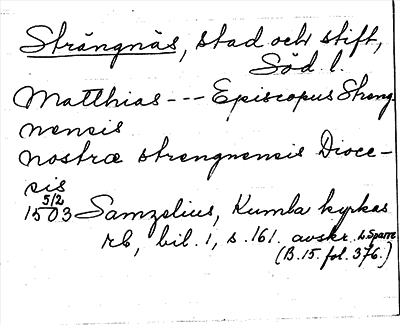 Strängnäs, stad och stift,
Söd. l.
Matthias --- Episcopus Streng-
nensis
nostræ strengnensis Dioce-
sis
15 5/2 03 Samzelius, Kumla kyrkas
rb, bil. 1, s. 161. avskr. L. Sparre
(B. 15. fol. 376.)